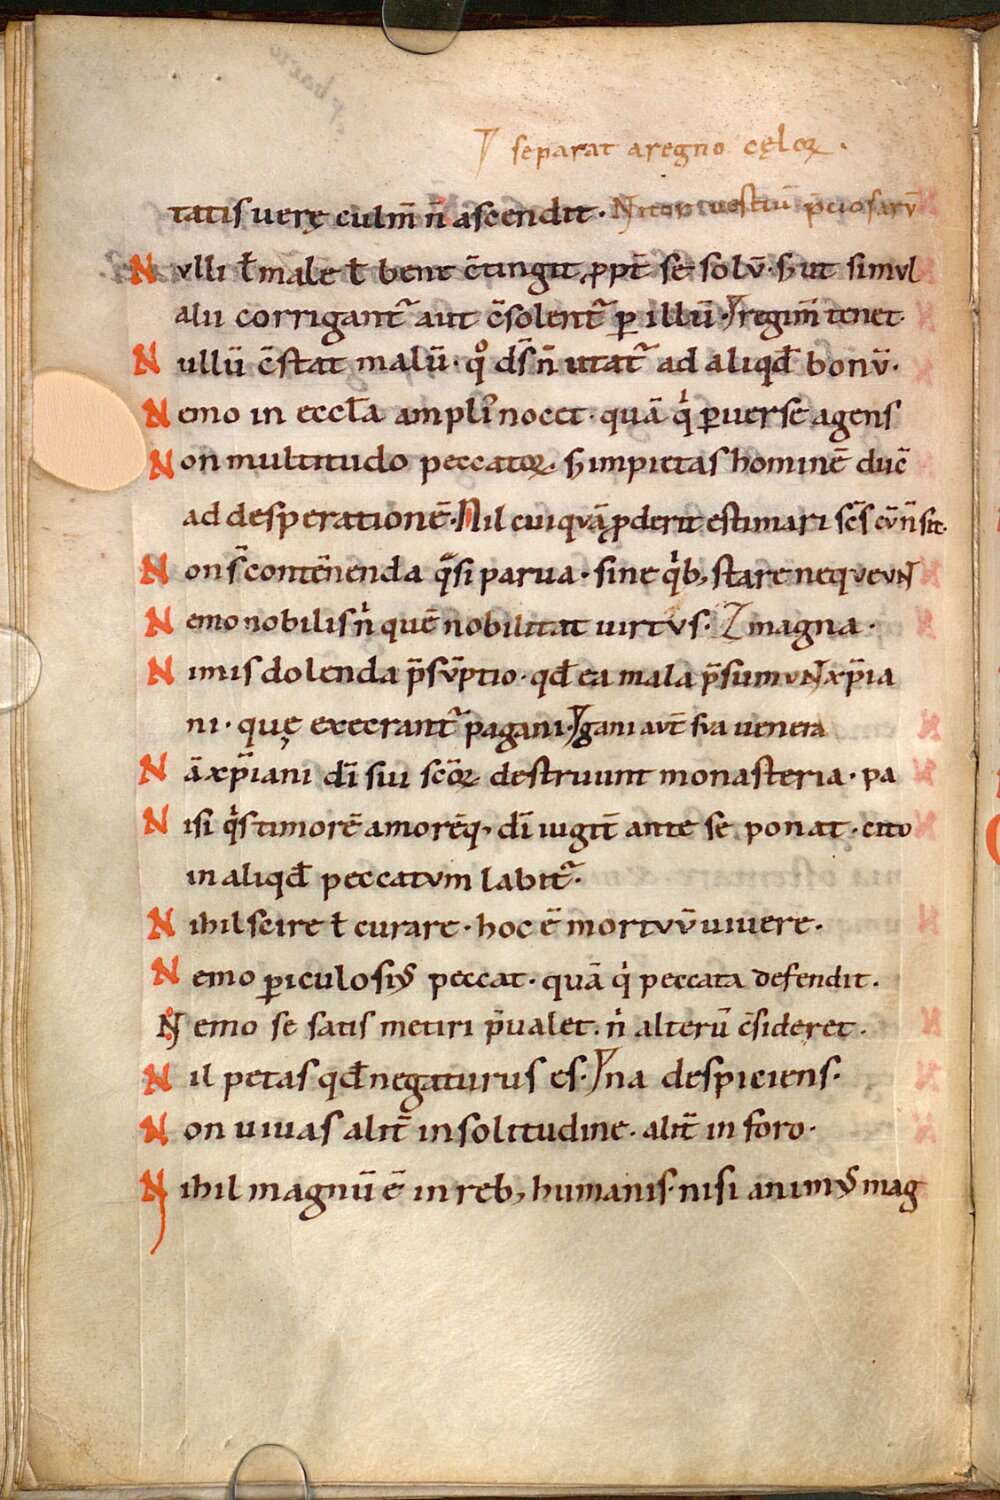 separat aregno cęloꝝ.
tatis uerę culm̄ n̄ ascendit. Nitor uestiū p̄ciosarū
Nvlli ł male ł bene c̄tingit ꝓpt̄ se solv̄. sꝫ ut simvl
alii corrigant᷑ aut c̄solent᷑ ꝑ illū. regim̄ tenet.
Nullū c̄stat malū. qͦ ds̄ n̄ utat᷑ ad aliqđ bonv̄.
Nemo in eccl̄a ampliꝰ nocet. quā qͥ ꝑuerse agens
Non multitudo peccatoꝝ. sꝫ impietas hominē duc̄
ad desperationē. Nil cuiqvā ꝓderit estimari sc̄s cv̄ n̄ sit.
Non s̄ contēnenda qͣsi parua. sine qͥbꝫ stare neqveuN̄
Nemo nobilis nͥ quē nobilitat uirtvs. magna.
Nimis dolenda p̄sv̄ptio. qđ ea mala p̄sumvN̄ xp̄ia
ni. quę execrant᷑ pagani. gani avt̄ sva uenera
Nā xp̄iani dī sui sc̄oꝝ destruunt monasteria. pa
Nisi qͥs timorē amorēqꝫ dī iugit̄ ante se ponat. cito
in aliqđ peccatvm labit᷑.
Nihil scire ł curare. hoc ē mortvv̄ uiuere.
Nemo ꝑiculosiꝰ peccat. quā qͥ peccata defendit.
Nemo se satis metiri p̄ualet. nͥ alterū c̄sideret.
Nil petas qđ negaturus es. na despiciens.
Non uiuas alit̄ in solitudine. alit̄ in foro.
Nihil magnū ē in rebꝫ humanis. nisi animꝰ mag